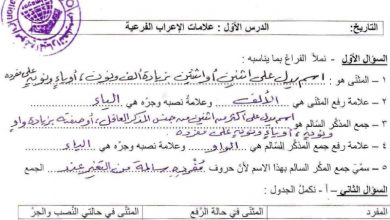 التاريخ:
الدرس الأول : علامات الإعراب الفرعية
السؤال الأول - نملأ الفراغ بما يناسبه :
١ – المثنّى هو : اسم يدل على اثنين أو اثنتين بزيادة ألف ونون، أو ياء ونون على مفرده
٢ – علامة رفع المثنّى هي الألف وعلامة نصبه وجرّه هي الياء
٣ – جمع المذكّر السّالم هو : اسم يدل على أكثر من اثنين من جنس المذكر العاقل، أو صفته بزيادة واو
ونون، أو ياء ونون على مفرده
٣ – علامة رفع جمع المذكّر السّالم هي الواو وعلامة نصبه وجرّه هي الياء
٤ – سمّي جمع المذكر السالم بهذا الاسم لأنّ حروف مفرده سالمة من التغير عند الجمع
السؤال الثاني – أ - نكمل الجدول :
المفرد المثنّى في حالة الرّفع المثنّى في حالتي النّصب والجرّ